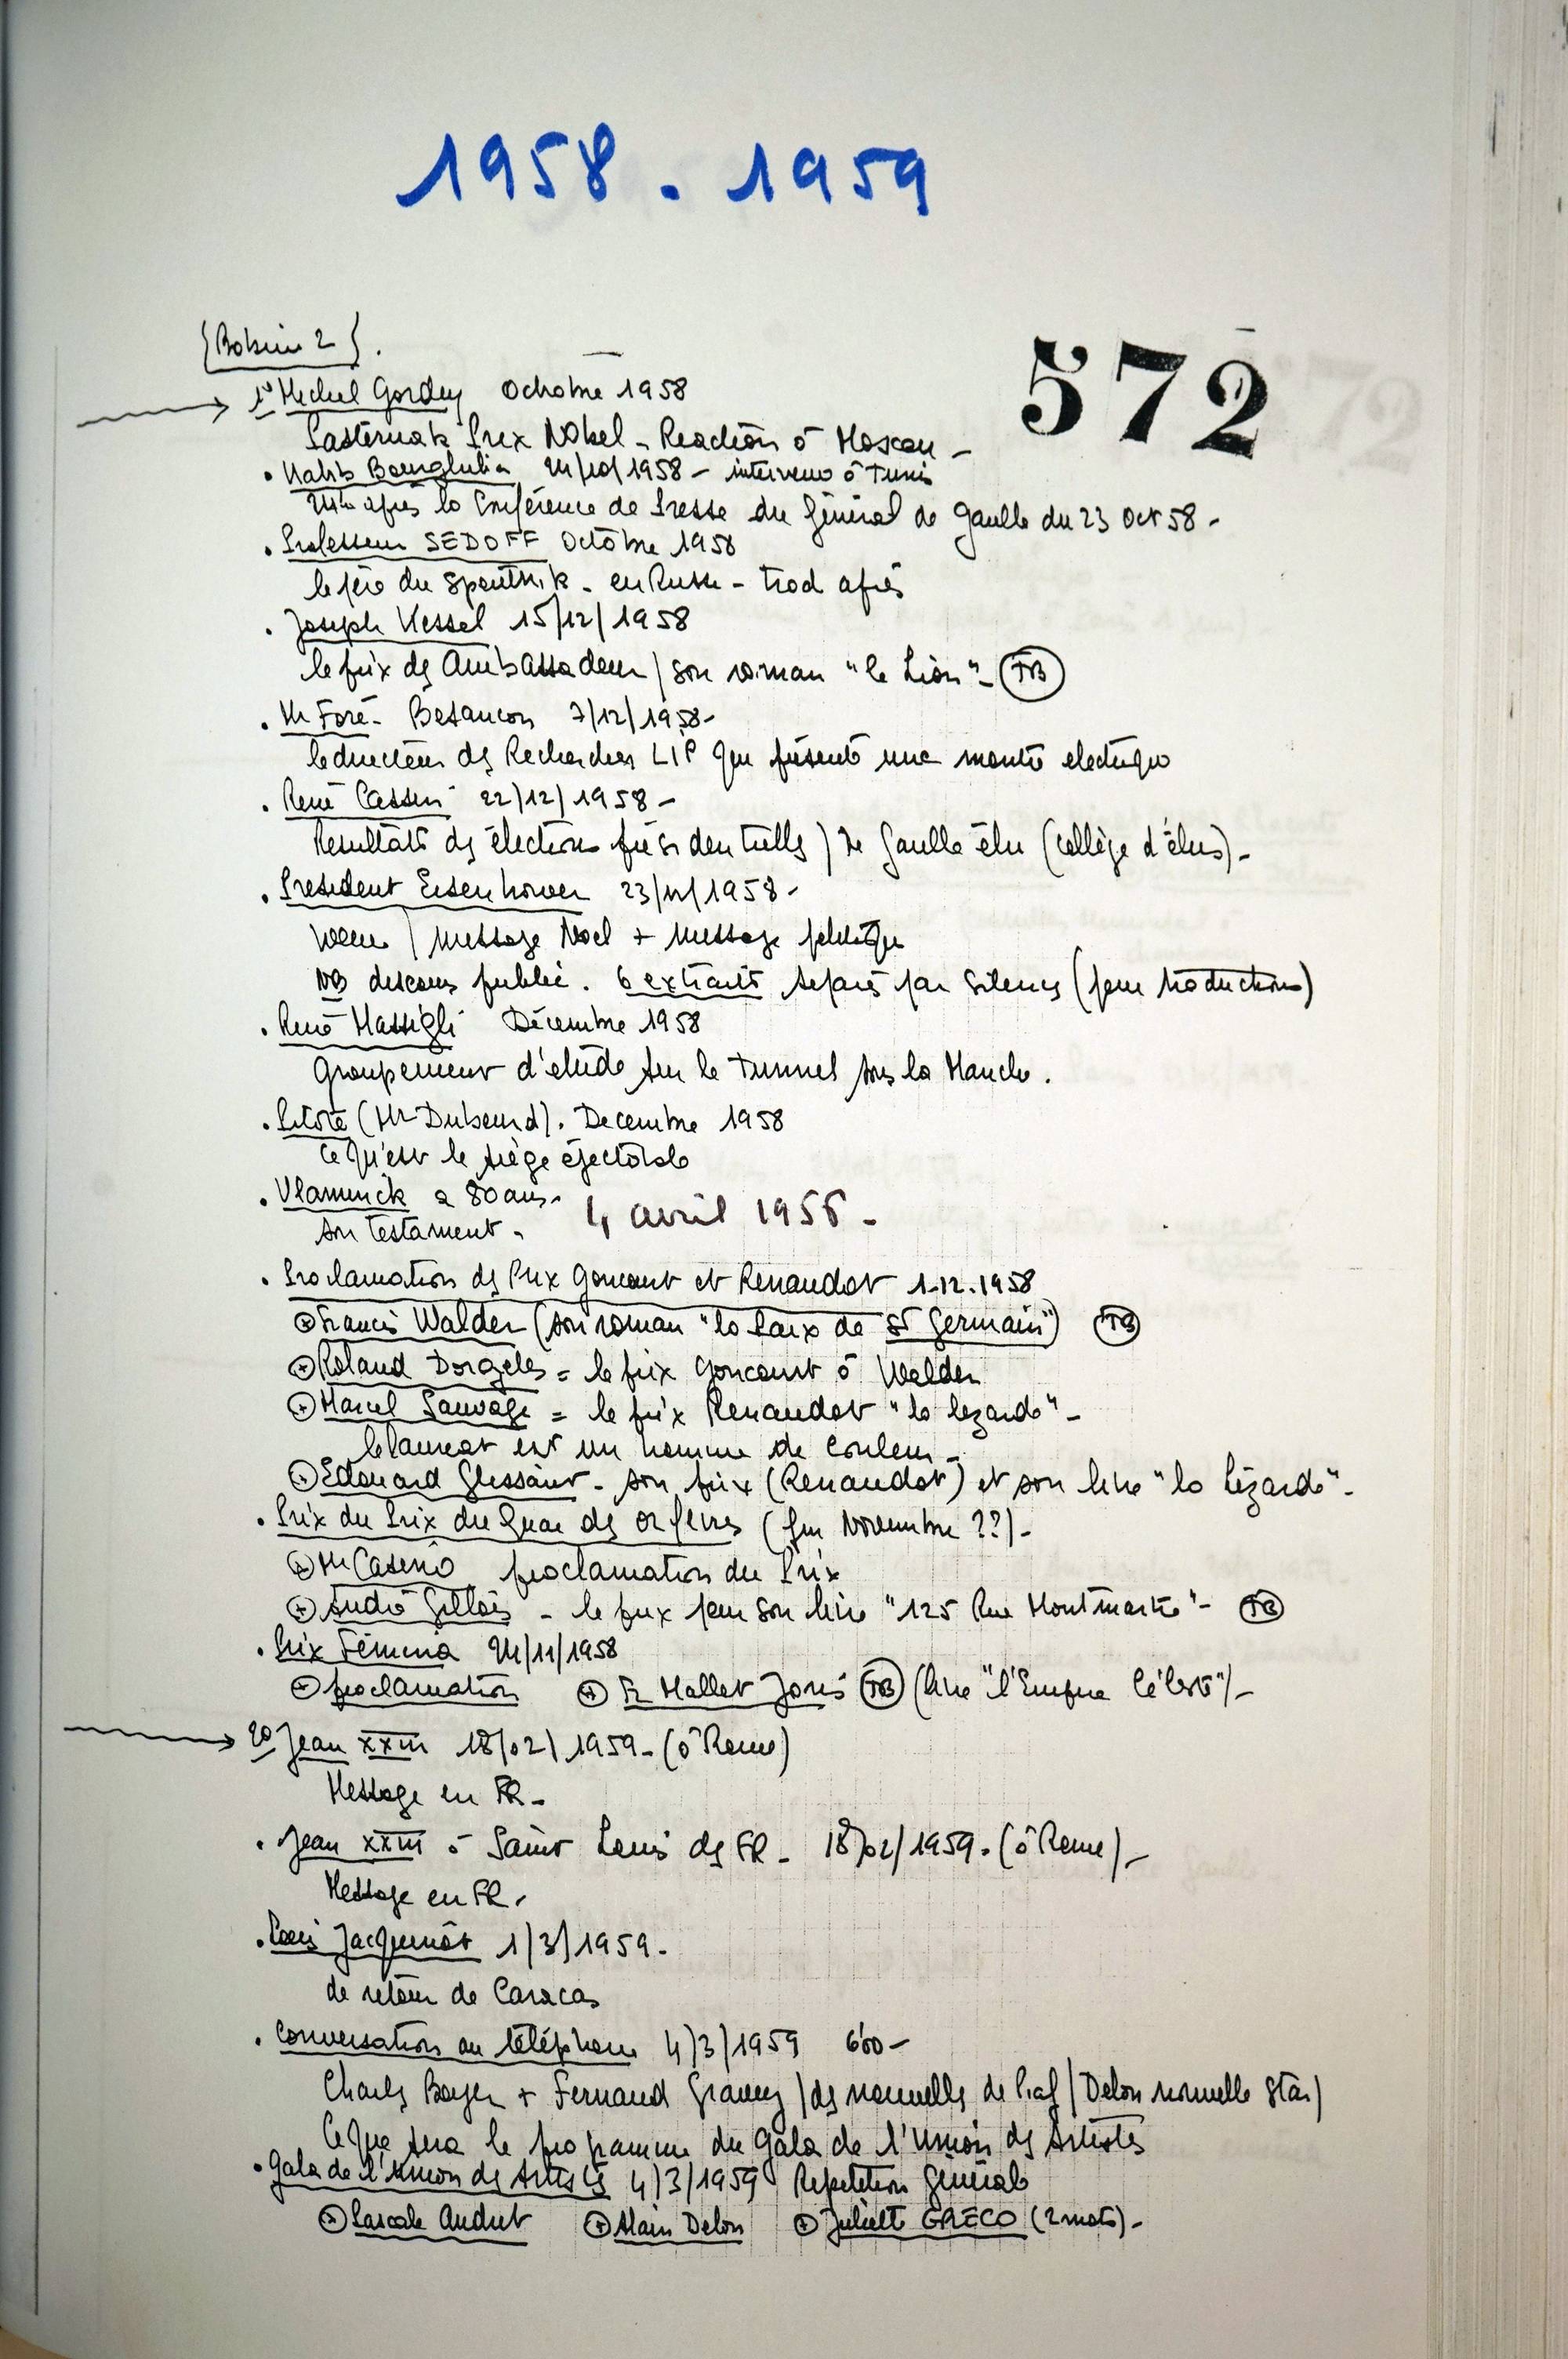 1958. 1959
572
{Bobine 2}.
1° Michel Gordey Octobre 1958
Pasternak Prix Nobel - Reaction à Moscou -
• Habib Bourghiba 24/10/1958 - interview à Tunis
après la Conférence de Presse du Général de Gaulle du 23 Oct 58 -
• Professeur SEDOFF Octobre 1958
le père du Spoutnik - en Russe - trad après
• Joseph Kessel 15/12/1958
le prix des Ambassadeurs / son roman "le Lion" - TB
• Mr Foré - Besancon 7/12/1958 -
le directeur des Recherches LIP qui présente une montre electrique
• René Cassin 22/12/1958 -
Resultats des élections présidentielles / de Gaulle élu (collège d'élus) -
• President Eisenhower 23/12/1958 -
voeux / message Noel + message politique
NB discours public. 6 extraits séparés par silences (pour traduction)
• René Massigli Décembre 1958
Groupement d'étude sur le tunnel sous la Manche.
• Pilote (Mr). Decembre 1958
Ce qu'est le siège éjectable
• Vlaminck a 80 ans - 4 avril 1956 -
son testament -
• Proclamation des Prix Goncourt et Renaudot 1-12-1958
+ Francis Walder (son roman "la Paix de St Germain") TB
+ Roland Dorgeles = le prix Goncourt à Walder
+ Marcel Sauvage = le prix Renaudot "la lezarde" -
le laureat est un homme de couleur -
+ Edouard Glissant - son prix (Renaudot) et son livre "la Lézarde" -
• Prix du Prix du Quai des orfèvres (fin Novembre ??) -
+ Mr Caseno proclamation du Prix
+ André Gillois - le prix pour son livre "125 Rue Montmartre" - TB
• Prix Fémina 24/11/1958
+ proclamation + Fr Mallet Joris TB (livre "l'Empire Céleste") -
2° Jean XXIII 18/02/1959 - (à Rome)
Message en FR -
• Jean XXIII à Saint Louis des FR - 18/02/1959. (à Rome) -
Message en FR -
• Louis Jacquinot 1/3/1959 -
de retour de Caracas
• Conversation au téléphone 4/3/1959 6'00 -
Charles Boyer + Fernand Gravey / des nouvelles de Piaf / Delon nouvelle star /
Ce que sera le programme du Gala de l'Union des Artistes
• Gala de l'Union des Artistes 4/3/1959 Repetition Générale
+ Pascale Audret + Alain Delon + Juliette GRECO (2 mots) -